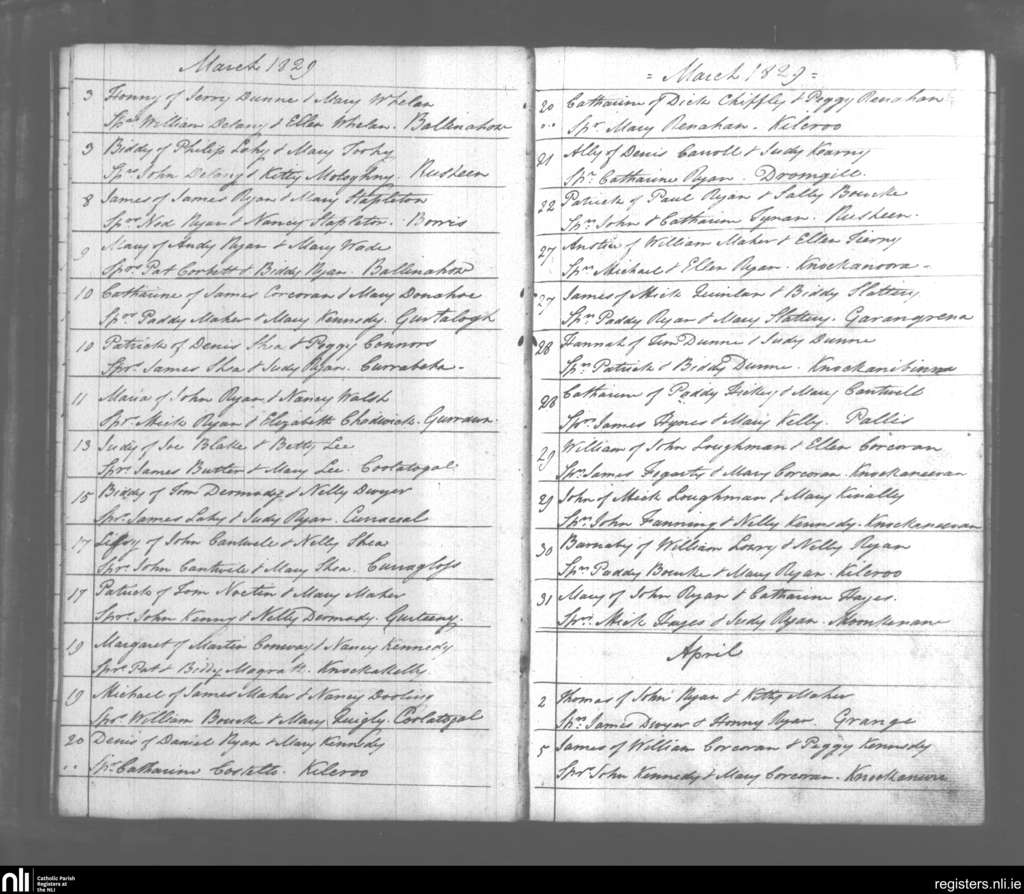 March 1829
3 Honny of Jerry Dunne & Mary Whelan
Sprs William Delany & Ellen Whelan. Ballinahow
3 Biddy of Philip Lahy & Mary Toohy
Sprs John Delany & Kitty Rusheen
8 James of James Ryan & Mary Stapleton
Sprs Ned Ryan & Nancy Stapleton. Borris
9 Mary of Andy Ryan & Mary Wade
Sprs Pat Corbett & Biddy Ryan. Ballinahow
10 Catharine of James Corcoran & Mary Donahoe
Sprs Paddy Maher & Mary Kennedy. Gurtalogh
10 Patrick of Denis Shea & Peggy Connors
Sprs James Shea & Judy Ryan. Currabeha
11 Maria of John Ryan & Nancy Walsh
Spr Mick Ryan & Elizabeth Chadwick. Gurraun
13 Judy of Joe Blake & Betty Lee
Spr. James Butler & Mary Lee. Coolatogal
15 Biddy of Tom Dermody & Nelly Dwyer
Spr. James Lahy & Judy Ryan.
17 of John Cantwell & Nelly Shea
Spr. John Cantwell & Mary Shea. Curraglass
17 Patrick of Tom Noctin & Mary Maher
Spr. John Kenny & Nelly Dermody. Gurteeny.
19 Margaret of Martin Conway & Nancy Kennedy
Sprs Pat & Biddy Magrath. Knockakelly
19 Michael of James Maher & Nancy Dooling
Spr. William Bourke & Mary Quigly. Coolatogal
20 Denis of Daniel Ryan & Mary Kennedy
" Spr. Catharine Costello. Kilcroo
= March 1829 =
20 Catharine of Dick Chiffly & Peggy Renahan
" Spr. Mary Renahan. Kilcroo
21 Ally of Denis Carroll & Judy Kearny
Spr. Catharine Ryan. Dromgill.
22 Patrick of Paul Ryan & Sally Bourke
Sprs John & Catharine Tynan. Rusheen.
27 Anstie of William Maher & Ellen Tierny
Sprs Michael & Ellen Ryan. Knockanoora
27 James of Mick Quinlan & Biddy Slattery
Sprs Paddy Ryan & Mary Slattery. Garangrena
28 Hannah of Tim Dunne & Judy Dunne
Sprs Patrick & Biddy Dunne. Knockanibinna
28 Catharine of Paddy Hickey & Mary Cantwell
Spr. James Hynes & Mary Kelly. Pallis
29 William of John Loughman & Ellen Corcoran
Sprs James Fogarty & Mary Corcoran. Knockaneevan
29 John of Mick Loughman & Mary Kinally
Sprs John Fanning & Nelly Kennedy. Knockaneevan
30 Barnaby of William Lowry & Nelly Ryan
Sprs Paddy Bourke & Mary Ryan. Kilcroo
31 Mary of John Ryan & Catharine Hayes.
Sprs. Mick Hayes & Judy Ryan.
April
2 Thomas of John Ryan & Kitty Maher
Sprs James Dwyer & Honny Ryan. Grange
5 James of William Corcoran & Peggy Kennedy
Sprs John Kennedy & Mary Corcoran.
nli Catholic Parish
Registers at
the NLI
registers.nli.ie